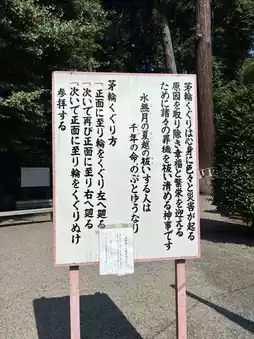 茅輪くぐりは心身に色々と災害が起る
原因を取り除き幸福と繁栄を迎える
ために諸々の罪穢を祓い清める神事です
水無月の夏越の祓いする人は
千年の命のぶとゆうなり
茅輪くぐり方
一正面に至り輪をくぐり左へ廻る
一次いで再び正面に至り右へ廻る
一次いで正面に至り輪をくぐりぬけ
参拝する